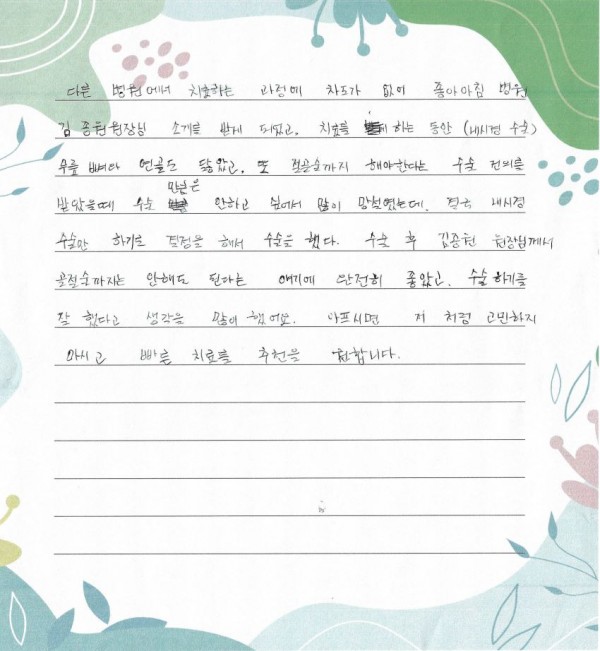 다른 병원에서 치료하는 과정에 차도가 없어 좋아아침 병원
김 종원 원장님 소개를 받게 되었고. 치료를 하는 동안 (내시경 수술)
무릎 뼈마다 연골도 닳았고. 또 절골술까지 해야한다는 수술 건의를
받았을때 수술 만큼은 안하고 싶어서 많이 망설였는데. 결국 내시경
수술만 하기로 결정을 해서 수술을 했다. 수술 후 김종원 원장님께서
골절술까지는 안해도 된다는 얘기에 완전히 좋았고. 수술하기를
잘 했다고 생각을 많이 했어요. 아프시면 저 처럼 고민하지
마시고 빠른 치료를 추천을 합니다.